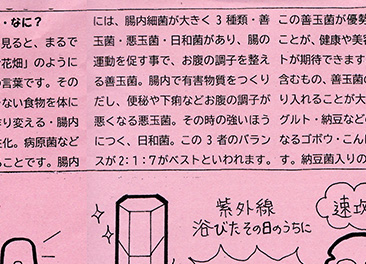 ・なに？
見ると、まるで
花畑』のように
言葉です。その
ない食物を体に
り変える・腸内
化。病原菌など
ことです。腸内
には、腸内細菌が大きく 3 種類・善
玉菌・悪玉菌・日和菌があり、腸の
運動を促す事で、お腹の調子を整え
る善玉菌。腸内で有害物質をつくり
だし、便秘や下痢などお腹の調子が
悪くなる悪玉菌。その時の強いほう
につく、日和菌。この 3 者のバラン
スが2：1：7がベストといわれます。
この善玉菌が優勢
ことが、健康や美容
トが期待できます
含むもの、善玉菌の
り入れることが大
グルト・納豆などの
なるゴボウ・こんに
す。納豆菌入りの
紫外線
浴びたその日のうちに
速攻